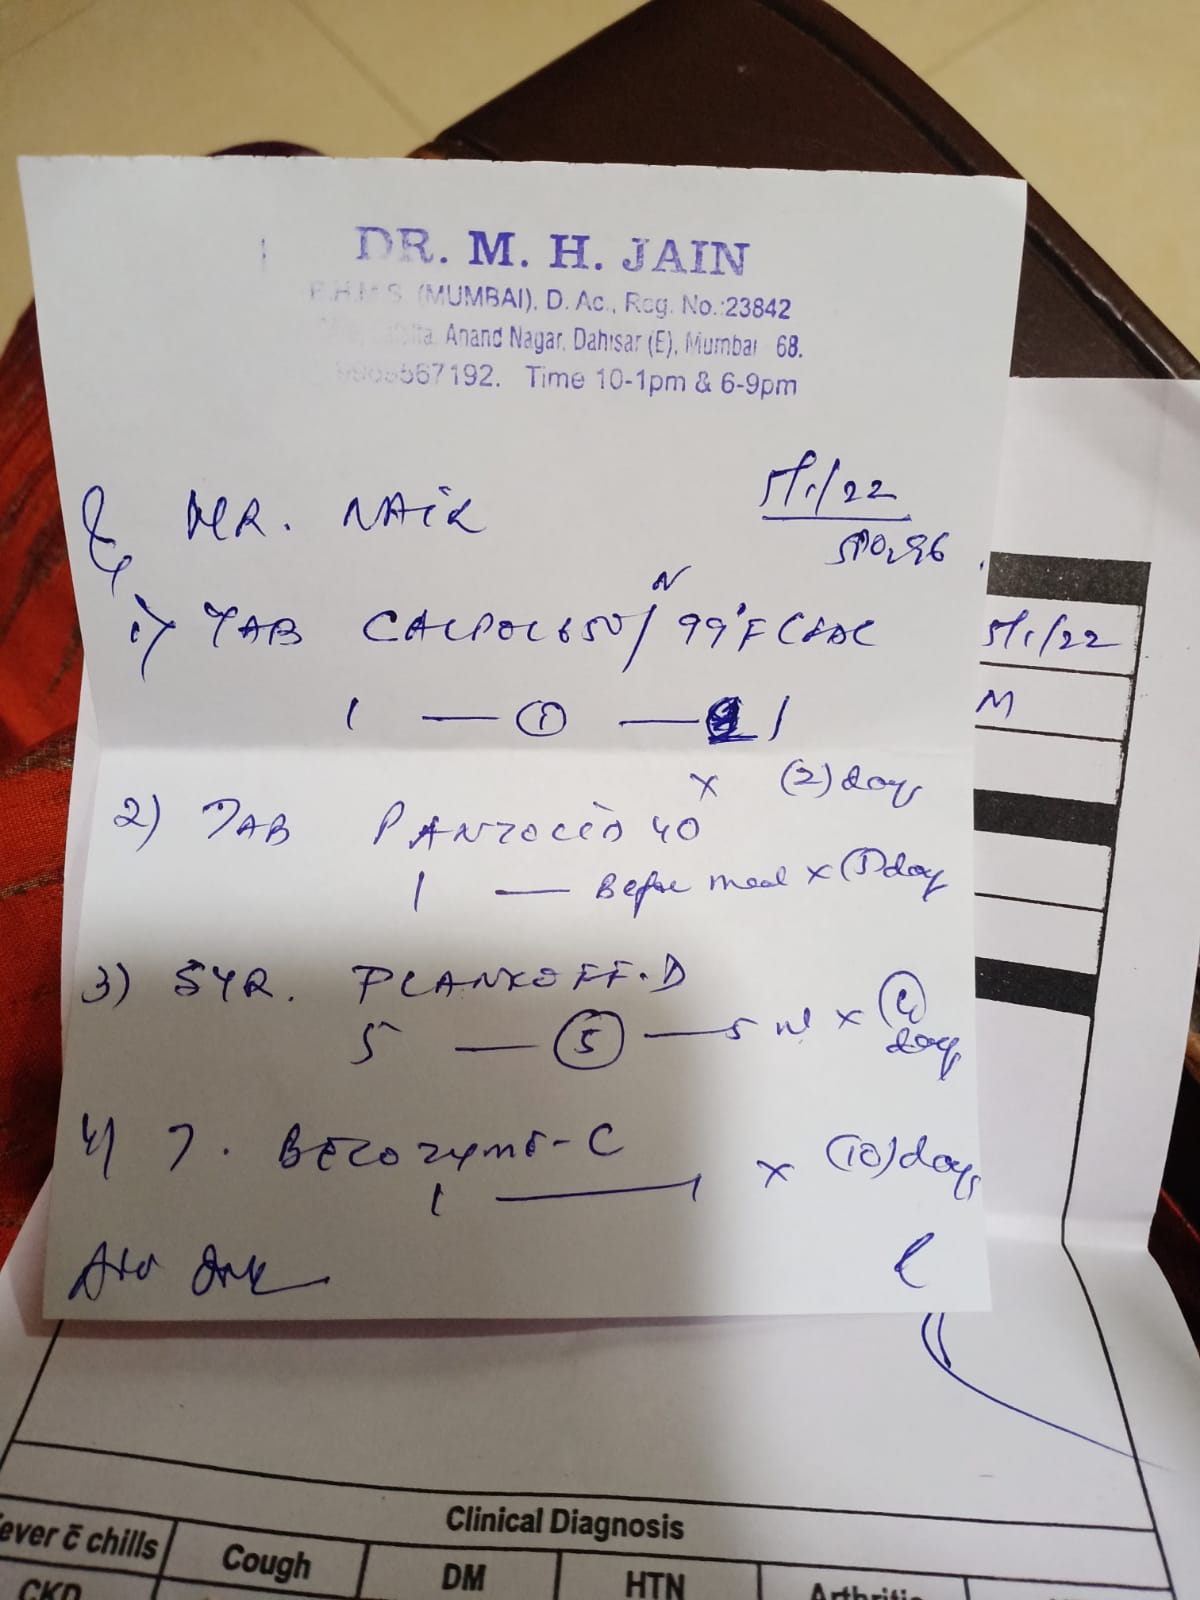 DR. M. H. JAIN
(MUMBAI), D. Ac., Reg. No.:23842
Anand Nagar, Dahisar (E), Mumbai 68.
Time 10-1pm & 6-9pm
MR. NAIR
5/1/22
1) TAB CALPOL 650 / 99°F
1 — 1 — 1
x (2) days
2) TAB PANTOCID 40
1 — Before meal x (5) day
3) SYR. PLANKOFF-D
5 — 5 — 5 ml x
days
4) T. BECOZYME-C
1 — 1 x (10) days
5/1/22
M
Clinical Diagnosis
ever c̄ chills
Cough
DM
HTN
CKD